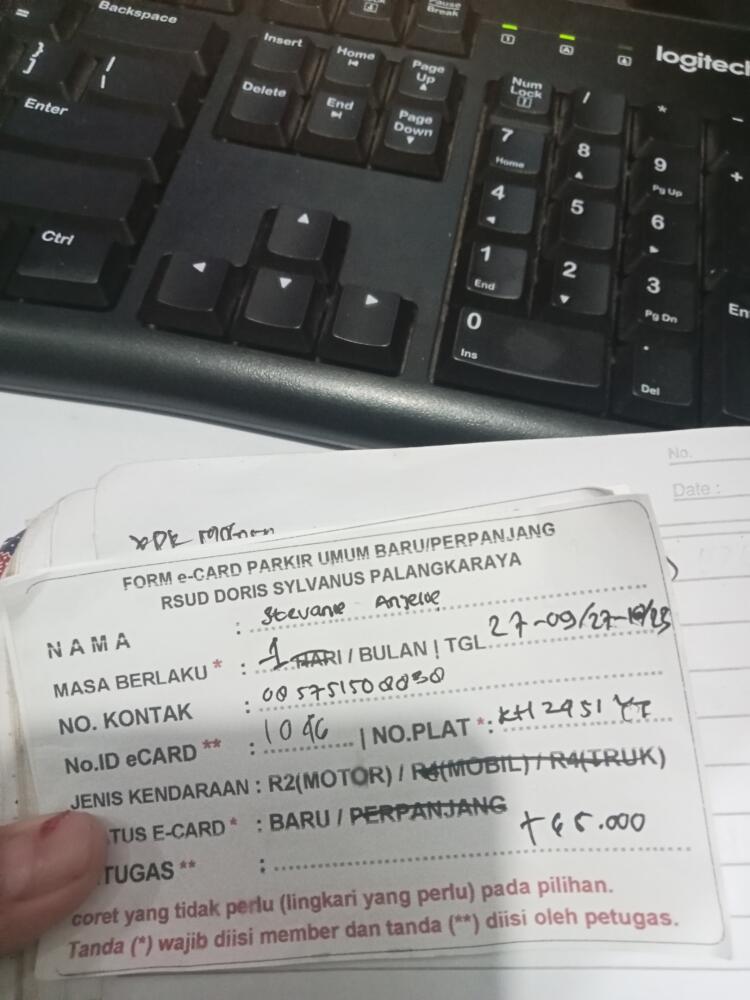 =
Backspace
Pause
Break
}
]
|
\
Insert
Home
Page
Up
Enter
Delete
End
Page
Down
Ctrl
1
A
logitech
Num
Lock
/
*
-
7
Home
8
9
Pg Up
+
4
5
6
1
End
2
3
Pg Dn
En
0
Ins
.
Del
No.
Date :
FORM e-CARD PARKIR UMUM BARU/PERPANJANG
RSUD DORIS SYLVANUS PALANGKARAYA
NAMA : Stevanie
MASA BERLAKU * : 1 HARI / BULAN | TGL 27-09/27-10/23
NO. KONTAK :
No.ID eCARD ** : | NO.PLAT *: KH 2951 YT
JENIS KENDARAAN : R2(MOTOR) / R4(MOBIL) / R4(TRUK)
TUS E-CARD * : BARU / PERPANJANG
TUGAS ** : 65.000
coret yang tidak perlu (lingkari yang perlu) pada pilihan.
Tanda (*) wajib diisi member dan tanda (**) diisi oleh petugas.